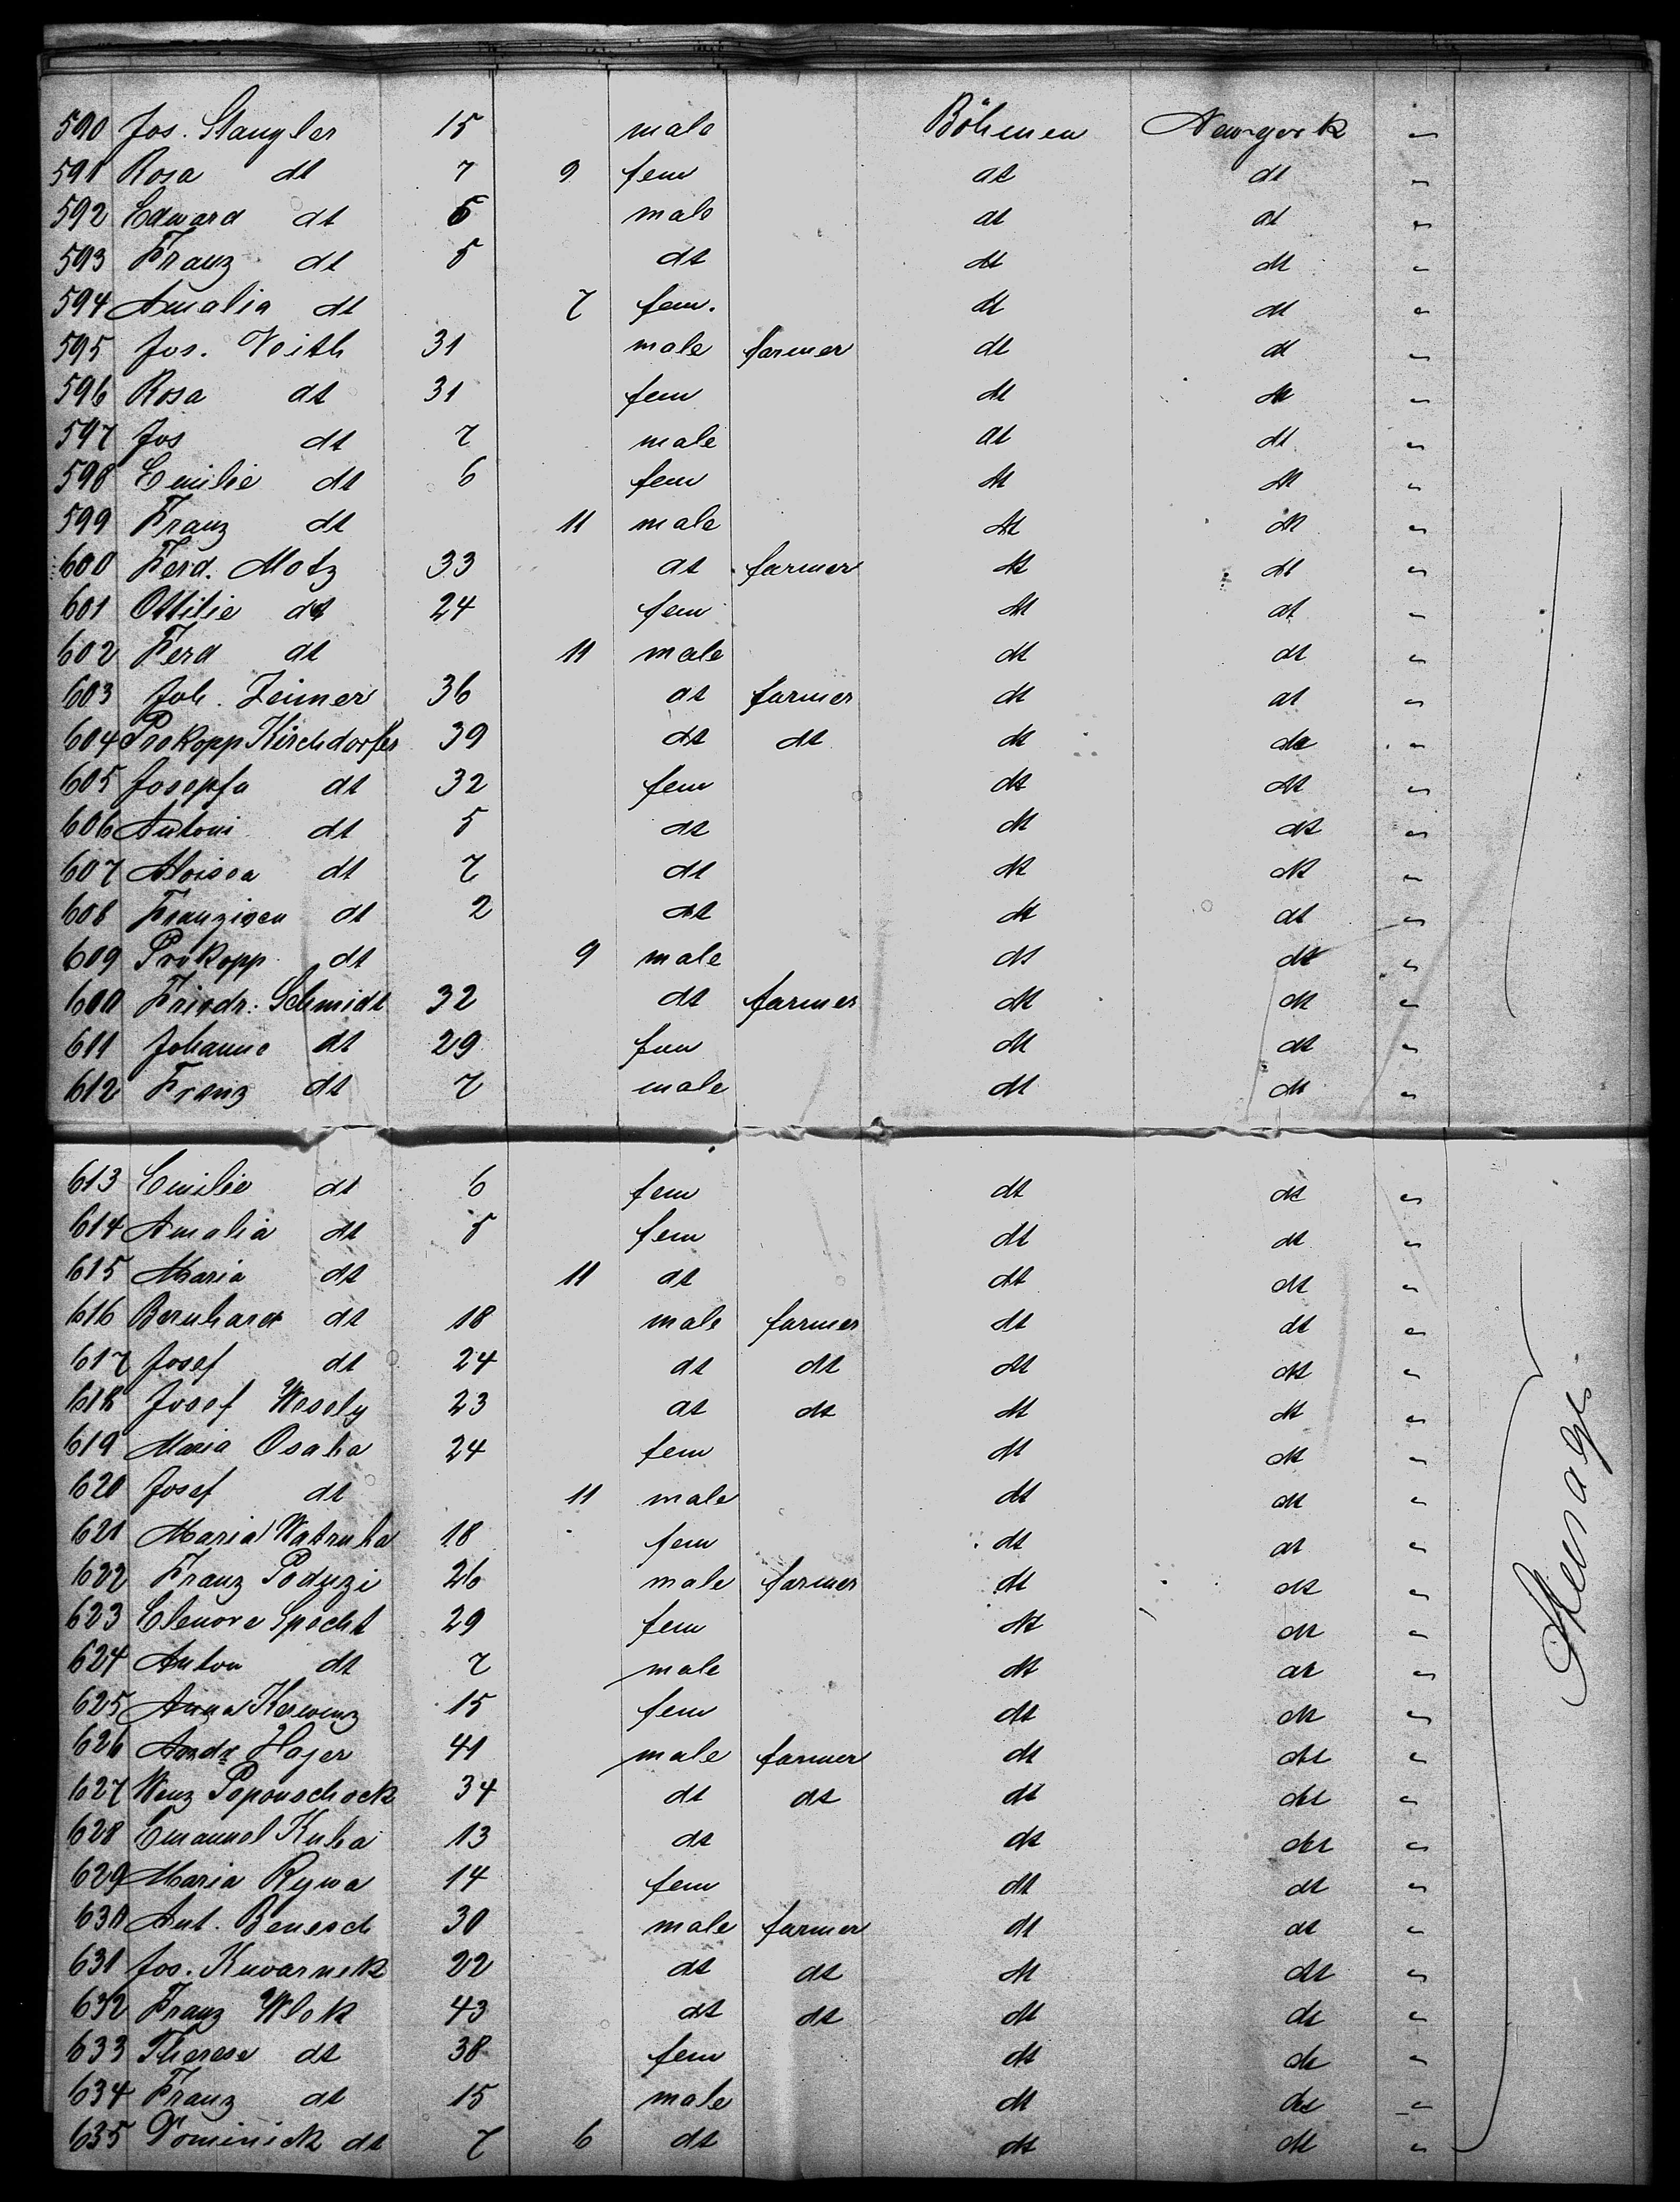 590 Jos. Stangler 15 male Böhmen Newyork "
591 Rosa dt 7 9 fem dt dt "
592 Edward dt 6 male dt dt "
593 Franz dt 5 dt dt dt "
594 Amalia dt 7 fem. dt dt "
595 Jos. Veith 31 male farmer dt dt "
596 Rosa dt 31 fem dt dt "
597 Jos dt 7 male dt dt "
598 Emilie dt 6 fem dt dt "
599 Franz dt 11 male dt dt "
600 Ferd. Motz 33 dt farmer dt dt "
601 Ottilie dt 24 fem dt dt "
602 Ferd dt 11 male dt dt "
603 Joh. Zeimer 36 dt farmer dt dt "
604 Prokopp Kirchdorfer 39 dt dt dt dt "
605 Josepfa dt 32 fem dt dt "
606 Antoni dt 5 dt dt dt "
607 Aloisea dt 7 dt dt dt "
608 Franzisca dt 2 dt dt dt "
609 Prokopp dt 9 male dt dt "
600 Friedr. Schmidt 32 dt farmer dt dt "
611 Johanne dt 29 fem dt dt "
612 Franz dt 7 male dt dt "
613 Emilie dt 6 fem dt dt "
614 Amalia dt 5 fem dt dt "
615 Maria dt 11 dt dt dt "
616 Bernhard dt 18 male farmer dt dt "
617 Josef dt 24 dt dt dt dt "
618 Josef Wesely 23 dt dt dt dt "
619 Maria Osaha 24 fem dt dt "
620 Josef dt 11 male dt dt "
621 Maria Watruha 18 fem dt dt "
622 Franz Poduzi 26 male farmer dt dt "
623 Elenore Specht 29 fem dt dt "
624 Anton dt 7 male dt dt "
625 Anna 15 fem dt dt "
626 Andr Hajer 41 male farmer dt dt "
627 Wenz Poponscheck 34 dt dt dt dt "
628 Emanuel Kuha 13 dt dt dt "
629 Maria Rywa 14 fem dt dt "
630 Ant. Benesch 30 male farmer dt dt "
631 Jos. Kuvarnek 22 dt dt dt dt "
632 Franz Wlek 43 dt dt dt dt "
633 Therese dt 38 fem dt dt "
634 Franz dt 15 male dt dt "
635 Dominick dt 7 6 dt dt dt "